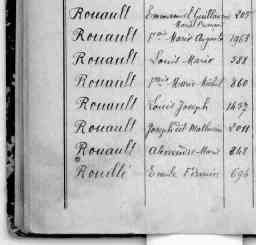 Rouault Emmanuel Guillaume 207
Marie
Rouault Marie Auguste 1963
Rouault Louis Marie 588
Rouault Marie Michel 860
Rouault Louis Joseph 1457
Rouault Joseph dit Mathurin 2011
Rouault Alexandre Marie 848
Rouillé Emile Firmin 696